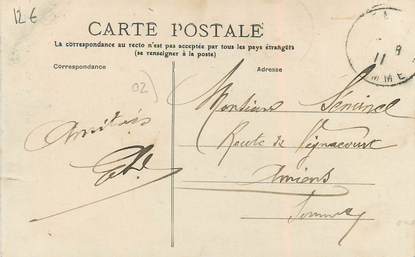 12 €
CARTE POSTALE
La correspondance au recto n'est pas acceptée par tous les pays étrangers
(se renseigner à la poste)
Correspondance
Adresse
02)
9
11
MME
Amitiés
Monsieur
Route de Vignacourt
Amiens
Somme